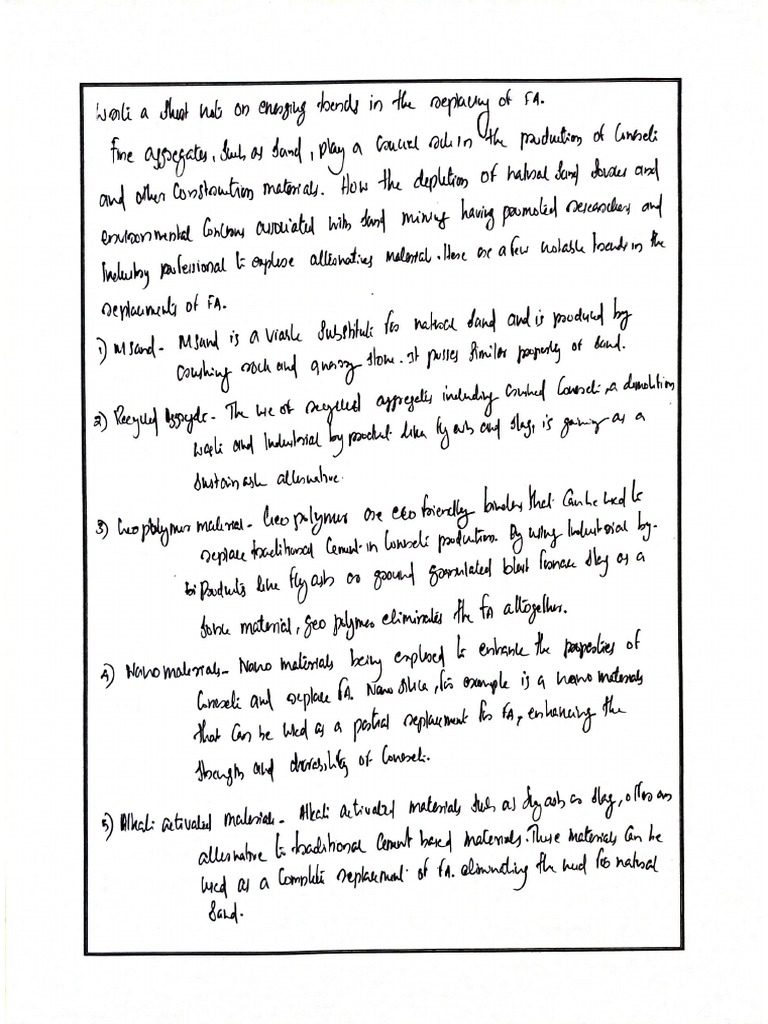 Write a short note on emerging trends in the replacing of FA.
Fine aggregates, such as sand, play a crucial role in the production of concrete
and other construction materials. How the depletion of natural sand sources and
environmental concerns associated with sand mining having promoted researchers and
Industry professional to explore alternatives material. Here are a few notable trends in the
replacements of FA.
1) M sand - M sand is a viable substitute for natural sand and is produced by
crushing rock and quarry stone. It posses similar property of sand.
2) Recycled Aggregate - The use of recycled aggregates including crushed concrete, a demolition
waste and Industrial by product like fly ash and slag, is gaining as a
sustainable alternative.
3) Geopolymer material - Geo polymer are eco friendly binders that can be used to
replace traditional cement in concrete production. By using Industrial by-
bi products like fly ash or ground granulated blast furnace slag as a
source material, geo polymer eliminates the FA altogether.
4) Nano materials - Nano materials being explored to enhance the properties of
concrete and replace FA. Nano silica, for example is a nano materials
that can be used as a partial replacement for FA, enhancing the
strength and durability of concrete.
5) Alkali activated materials - Alkali activated materials such as fly ash or slag, offers an
alternative to traditional cement based materials. These materials can be
used as a complete replacement of FA. eliminating the need for natural
sand.